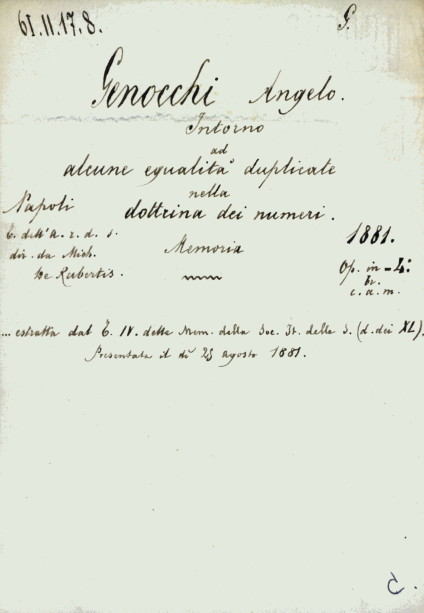 61.11.17.8.
G.
Genocchi Angelo.
Intorno
ad
alcune egualità duplicate
nella
dottrina dei numeri.
Napoli
T. dell'A. r. d. s.
dir. da Mich.
De Rubertis.
Memoria
1881.
Op. in-4º
br.
c. a. m.
... estratta dal T. IV. delle Mem. della Soc. It. delle S. (d. dei XL).
Presentata il dì 25 agosto 1881.
C.